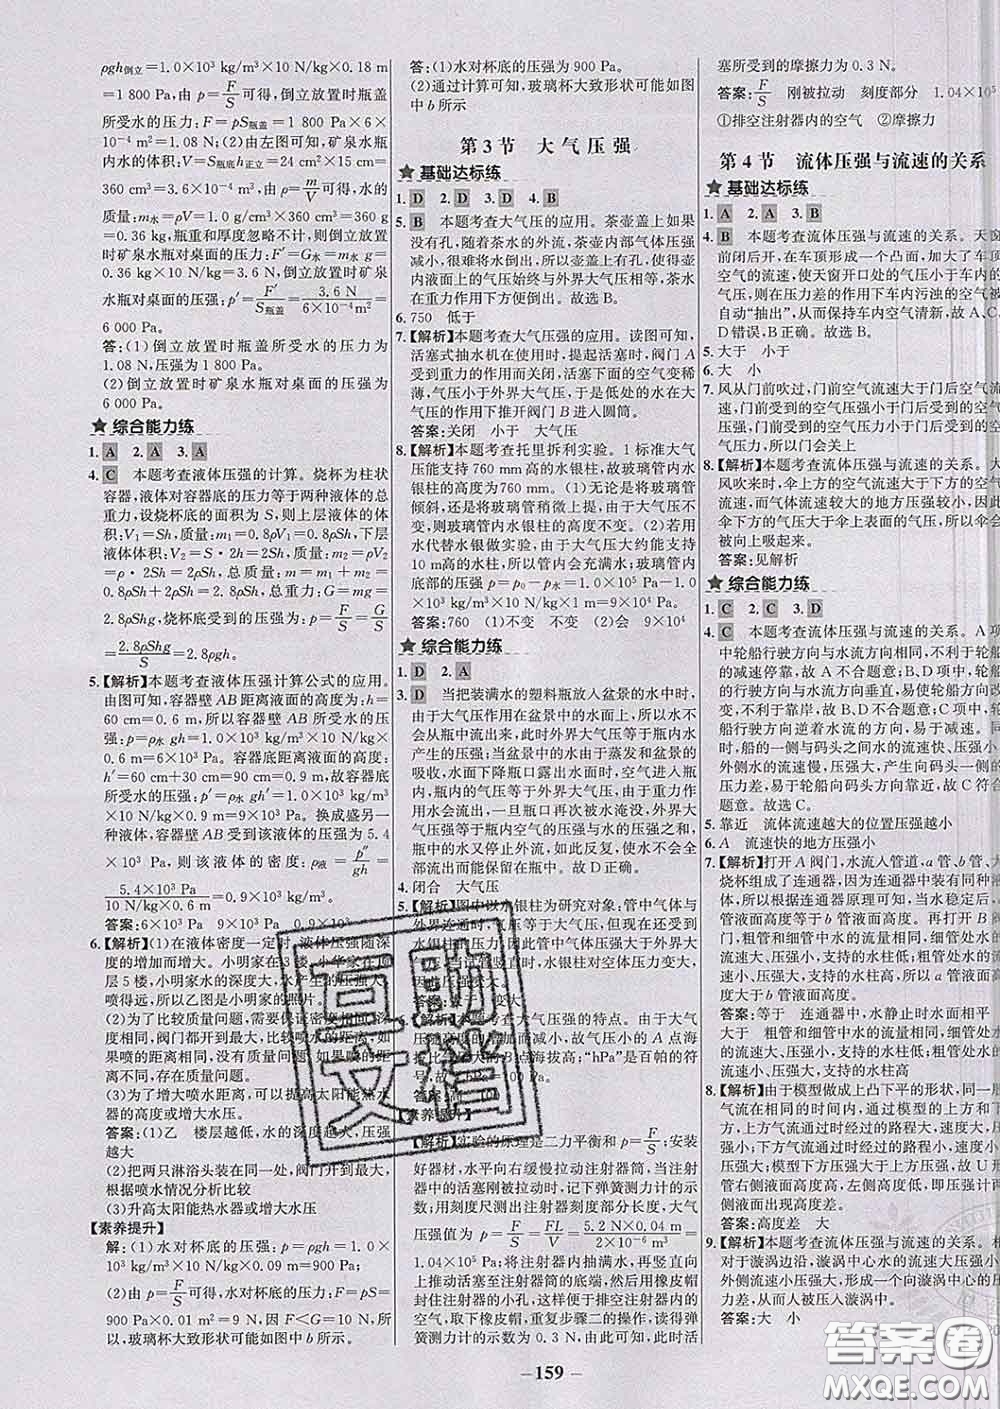 ρgh倒立=1.0×10³ kg/m³×10 N/kg×0.18 m
=1 800 Pa,由 p=F/S 可得,倒立放置时瓶盖
所受水的压力:F=pS瓶盖=1 800 Pa×6×
10⁻⁴ m²=1.08 N;(2)由左图可知,矿泉水瓶
内水的体积:V=S瓶底h正立=24 cm²×15 cm
=360 cm³=3.6×10⁻⁴ m³,由 ρ=m/V 可得,水的
质量:m水=ρV=1.0 g/cm³×360 cm³=360 g=
0.36 kg,瓶重和厚度忽略不计,则倒立放置
时矿泉水瓶对桌面的压力:F′=G水=m水g=
0.36 kg×10 N/kg=3.6 N,倒立放置时矿泉
水瓶对桌面的压强:p′=F′/S瓶盖=3.6 N/6×10⁻⁴ m²=
6 000 Pa.
答:(1)倒立放置时瓶盖所受水的压力为
1.08 N,压强为1 800 Pa;
(2)倒立放置时矿泉水瓶对桌面的压强为
6 000 Pa.
★综合能力练
1. A 2. A 3. A
4. C 本题考查液体压强的计算。烧杯为柱状
容器,液体对容器底的压力等于两种液体的总
重力,设烧杯底的面积为 S,则上层液体的体
积:V₁=Sh,质量:m₁=0.8ρV₁=0.8ρSh,下层
液体体积:V₂=S·2h=2Sh,质量:m₂=ρV₂
=ρ·2Sh=2ρSh,液体的总质量:m=m₁+m₂=
0.8ρSh+2ρSh=2.8ρSh,总重力:G=mg=
2.8ρShg,烧杯底受到的压强为:p=F/S=G/S
=2.8ρShg/S=2.8ρgh。
5.【解析】本题考查液体压强计算公式的应用。
由图可知,容器壁 AB 距离液面的高度为:h=
60 cm=0.6 m,所以容器壁 AB 处所受水的压
强:p=ρ水gh=1.0×10³ kg/m³×10 N/kg
×0.6 m=6×10³ Pa;容器底距离液面的高度:
h′=60 cm+30 cm=90 cm=0.9 m,故容器底
部所受水的压强:p′=ρ水gh′=1.0×10³ kg/m³
×10 N/kg×0.9 m=9×10³ Pa。换成盛满另
一种液体,容器壁 AB 受到该液体的压强为 5.4
×10³ Pa,则该液体的密度:ρ液=p″/gh=
5.4×10³ Pa/10 N/kg×0.6 m=0.9×10³ kg/m³。
答案:6×10³ Pa 9×10³ Pa 0.9×10³
6.【解析】(1)在液体密度一定时,液体压强随深
度的增加而增大。小明家在3楼,小华家在顶
层5楼,小明家水的深度大,水产生的压强大
喷得远,所以乙图是小明家的照片。
(2)为了比较质量问题,需要保证密度相同的
距离相同,阀门都开到最大,比较喷水的距离。如
果喷的距离相同,则不存在质量问题。
(3)为了增大喷水距离,可以提高太阳能热水
器的高度或增大水压。
答案:(1)乙 楼层越低,水的深度越大,压强
越大
(2)把两只淋浴头装在同一处,阀门开到最大,
根据喷水情况分析比较
(3)升高太阳能热水器或增大水压
【素养提升】
解:(1)水对杯底的压强:p=ρgh=1.0×
10³ kg/m³×10 N/kg×0.09 m=900 Pa;
(2)由 p=F/S 可得,水对杯底的压力:F=pS=
900 Pa×0.01 m²=9 N,因 F<G=10 N,所
以,玻璃杯大致形状可能如图中 b 所示。
答:(1)水对杯底的压强为900 Pa,
(2)通过计算可知,玻璃杯大致形状可能如图
中 b 所示
第3节 大气压强
★基础达标练
1. D 2. D 3. D 4. B
5. B 本题考查大气压的应用。茶壶盖上如果
没有孔,随着茶水的外流,茶壶内部气体压强
减小,很难将水倒出。所以壶盖有孔,使得壶
内液面上的气压始终与外界大气压相等,茶水
在重力作用下方便倒出。故选 B。
6. 750 低于
7.【解析】本题考查大气压强的应用。读图可知,
活塞式抽水机在使用时,提起活塞时,阀门 A
受到重力作用而关闭,活塞下面的空气变稀
薄,气压小于外界大气压。于是,低处的水在大
气压的作用下推开阀门 B 进入圆筒。
答案:关闭 小于 大气压
8.【解析】本题考查托里拆利实验。1标准大气
压能支持760 mm高的水银柱,故玻璃管内水
银柱的高度为760 mm。(1)无论是将玻璃管
倾斜,还是将玻璃管稍微上提,由于大气压不
变,则玻璃管内水银柱的高度不变。(2)若用
水代替水银做实验,由于大气压大约能支持
10 m高的水柱,所以水会充满玻璃管;玻璃管
内部底部的压强=p=p₀−p水=1.0×10⁵ Pa−1.0×
10³ kg/m³×10 N/kg×1 m=9×10⁴ Pa。
答案:760 (1)不变 不变 (2)会 9×10⁴
★综合能力练
1. D 2. A
3. D 当把装满水的塑料瓶放入盆景的水中时,
由于大气压作用在盆景中的水面上,所以水不
会从瓶中流出来,此时外界大气压等于瓶内水
产生的压强;当盆景中的水由于蒸发和盆景的
吸收,水面下降使瓶口露出水面时,空气进入瓶
内,瓶内压强大于外界大气压,由于重力作用
水会流出来,一旦瓶口再次被水淹没,外界大
气压强等于瓶内空气压强与水的压强之和,瓶
中的水又停止外流。如此反复,使瓶中的水不会
全部流出而能保留在瓶中。故 D 正确。
4. 闭合 大气压
5.【解析】图中以水银柱为研究对象;管中气体与
外界连通时,气压等于大气压,但现在还受到
水银柱的压强;因此管中气体压强大于外界大
气压。当玻璃管竖直时,水银柱对空气压力变大,
因此压强变大。
答案:大于 变大
6.【解析】本题考查大气压强的特点。由于大气
压随高度的增加而减小,气压小的 A 点海
拔比气压大的 B 点海拔高;“hPa”是百帕的符
号,1 hPa=100 Pa。
答案:高 100
【素养提升】
【解析】实验的原理是二力平衡和 p=F/S;安装
好器材,水平向右缓慢拉动注射器筒,当注射
器中的活塞刚被拉动时,记下弹簧测力计的示
数;用刻度尺测出注射器刻度部分长度,大气
压强值为 p=F/S=FL/V=5.2 N×0.04 m/2×10⁻⁶ m³=
1.04×10⁵ Pa;将注射器内抽满水,竖直向上
推动活塞至注射器筒的底端,然后用橡皮帽封
住注射器的小孔,这样便于排空注射器内的空
气,取下橡皮帽,重复步骤二的操作。读得弹
簧测力计的示数为 0.3 N,由此可知,此时活
塞所受到的摩擦力为 0.3 N。
答案:F/S 刚被拉动 刻度部分 1.04×10⁵
①排空注射器内的空气 ②摩擦力
第4节 流体压强与流速的关系
★基础达标练
1. A 2. A 3. B
4. B 本题考查流体压强与流速的关系。天窗
前闭后开,在车顶形成一个凸面,加大了车顶
空气的流速,使天窗开口处的气压小于车内气
压,所以在压力差的作用下车内污浊的空气被
自动“抽出”,从而保持车内空气清新,故 A、C、
D 错误,B 正确。故选 B。
5. 大于 小于
6. 大 小
7. 风从门前吹过,门前空气流速大于门后空气流
速,门前受到的空气压强小于门后受到的空
气压强,所以门会关上
8.【解析】本题考查流体压强与流速的关系。大
风吹来时,伞上方的空气流速大于伞下方的
流速,而气体流速较大的地方压强较小,故
伞下方的气压大于伞上表面的气压,所以伞会
被向上吸起来。
答案:见解析
★综合能力练
1. C 2. C 3. D
4. C 本题考查流体压强与流速的关系。A 项
中轮船行驶方向与水流方向相同,不利于轮船
的减速停靠,故 A 不合题意;B、D 项中轮船
的行驶方向与水流方向垂直,易使轮船方向改
变,不利于靠岸,故 B、D 不合题意;C 项中轮
船行驶方向逆着水流的方向,易于减速。同
时,船的一侧与码头之间水的流速快、压强小
外侧水的流速慢,压强大,产生向码头方向的
压力差,易于轮船向码头停靠,所以 C 符合
题意。故选 C。
5. 靠近 流体流速越大的位置压强越小
6. A 流速快的地方压强小
7.【解析】打开 A 阀门,水流入管道,a 管、b 管、大
烧杯组成了连通器,因为连通器中水在静止
时,各容器中的水面相平,故当水稳定后,a
管液面高度等于 b 管液面高度。再打开 B 阀
门,粗管和细管中水的流量相同,细管处水的
流速大、压强小,支持的水柱低;粗管处水的
流速小、压强大,支持的水柱高,故 a 管液面高
度大于 b 管液面高度。
答案:等于 连通器中,水静止时水面相平
大于 粗管和细管中水的流量相同,细管处水
的流速大、压强小,支持的水柱低;粗管处水的
流速小、压强大,支持的水柱高
8.【解析】由于模型做成上凸下平的形状,同一股
气流在相同的时间内,通过模型的上方和下
方,上方气流通过时经过的路程大,速度大、压
强小;下方气流通过时经过的路程小,速度小、压
强大;故模型下方压强大于上方压强,故 U 形
管右侧液面受到的压强小,液面高,左右两管中
液面出现高度差。
答案:高度差 大
9.【解析】本题考查流体压强与流速的关系。相
对于漩涡边沿,漩涡中心水的流速大压强小
外侧流速小压强大,形成一个向漩涡中心的压
力差,人易被压入漩涡中。
答案:大 小
－159－
互助文档
答案圈
MXQE.COM